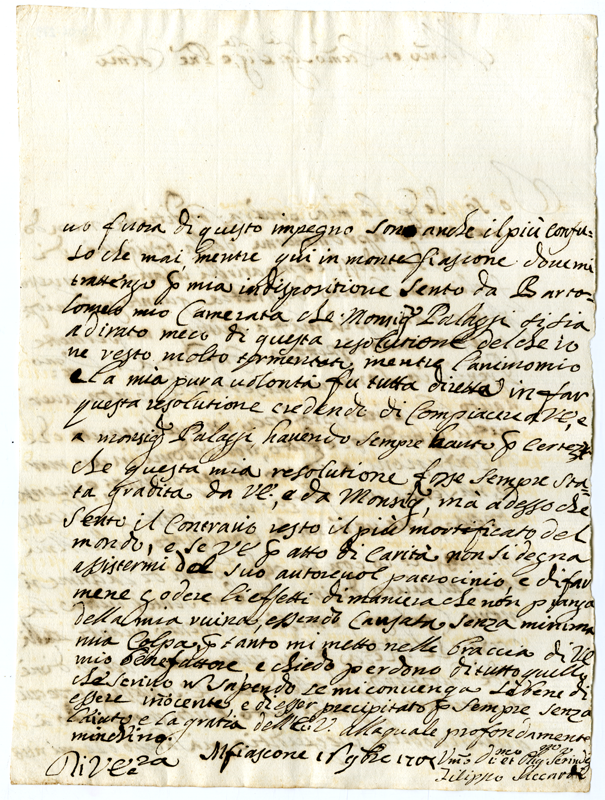 uo fuora di questo impegno sono anche il più confu=
so che mai, mentre qui in monte fiascone dove mi
trattengo p mia indispositione sento da Barto=
lomeo mio Camerata che Monsigr Palazzi si sia
adirato meco di questa resolutione del che io
ne resto molto tormentati, mentre l'animo mio
e la mia pura volontà fu tutta diretta in far
questa resolutione credendo di Compiacere a VE, e
a monsigr Palazzi havendo sempre hauto p Certezza
che questa mia resolutione fosse sempre sta=
ta gradita da VE, e da Monsigr, mà adesso che
sento il Contrario resto il più mortificato del
mondo, e se VE p atto di Carità non si degna
assistermi del suo autorevol patrocinio, e di far
mene godere li effetti di maniera che non pianga
della mia ruina, essendo Causata senza minima
mia Colpa, p tanto mi metto nelle braccia di VE
mio Benefattore, e chiedo perdono di tutto quello
che scrivo nō sapendo se mi convenga sebene di
essere inocente, e d'esser precipitato p sempre senza
l'aiuto, e la gratia dell'E.V. alla quale profondamente
m'inchino.
Mfiascone 9bre 170
Di VEcza
Umo et Serud
Filippo